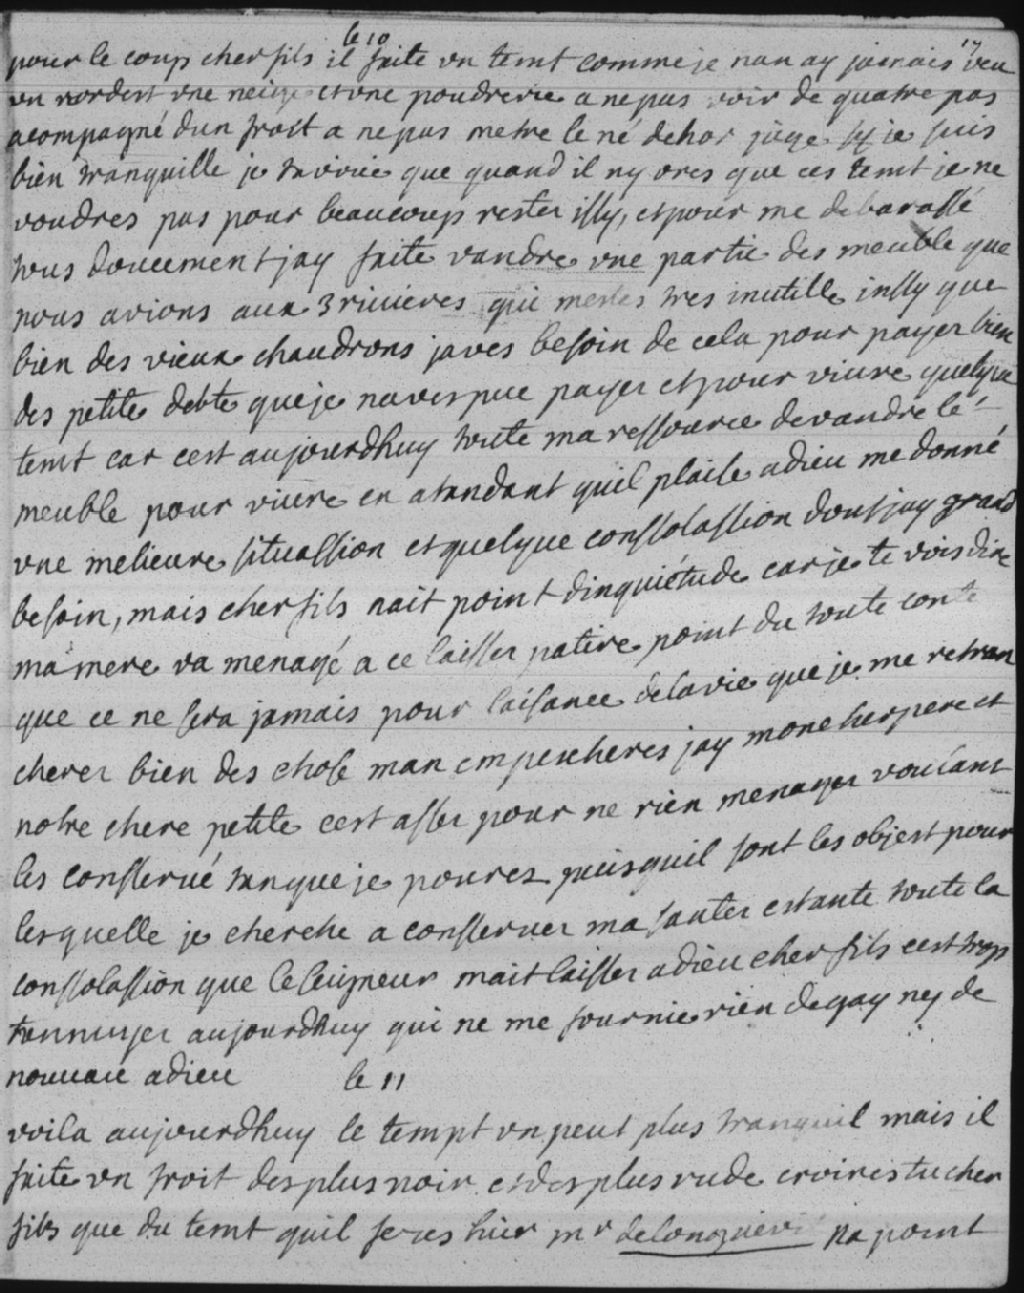 le 10
17
pour le coup cher fils il faite un temt comme je nan ay jaemais veu
un nordest une neige et une poudrerie a ne pas voir de quatre pas
acompagné dun froit a ne pas metre le né dehor juge sy je suis
bien tranquille je tavoüe que quand il ny ores que ces temt je ne
voudres pas pour beaucoup rester issy, et pour me debarassé
tous doucement jay faite vandre une partie des meuble que
nous avions aux 3 rivieres qui mestes tres inutille insy que
bien des vieux chaudrons javes besoin de cela pour payer bien
des petite debte que je naves pue payer et pour vivre quelque
temt car cest aujourdhuy toute ma ressource de vandre le
meuble pour vivre en atandant quil plaise a dieu me donné
une melieure situassion et quelque conssolassion dont jay grand
besoin, mais cher fils nait point dinquiétude car je te vois dire
ma mere va menagé a ce laisser patire point du toute conte
que ce ne sera jamais pour laisance de la vie que je me retran
cherer bien des chose man empescheres jay mone cher pere et
notre chere petite cest asser pour ne rien menager voulant
les conservé tan que je pourez puisquil sont les objest pour
lesquelle je cherche a conserver ma santer estante toute la
conssolassion que le seigneur mait laisser adieu cher fils cest trop
tennuyer aujourdhuy qui ne me fournie rien de gay ny de
nouvau adieu le 11
voila aujourdhuy le tempt un peut plus tranquil mais il
faite un froit des plus noir et des plus rude croirestu cher
fils que du temt quil feres hier mr delongueuil na point